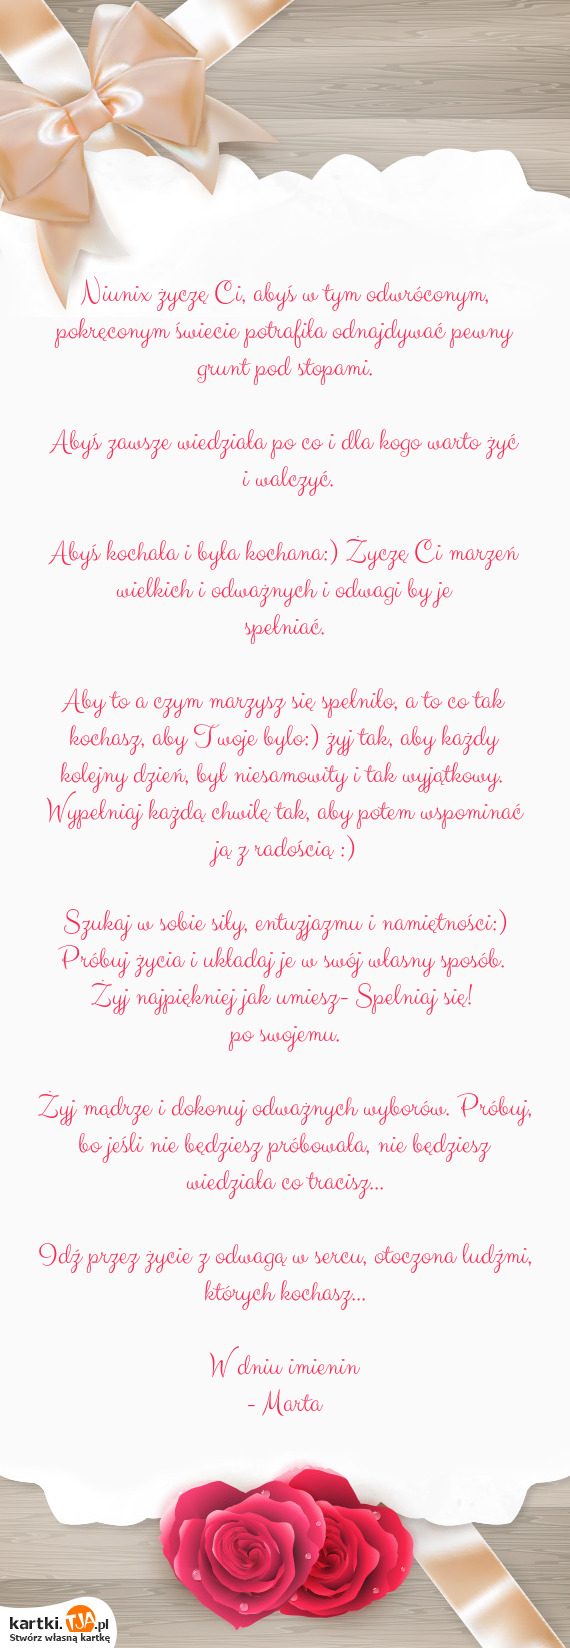 Niunix życzę Ci, abyś w tym odwróconym,
pokręconym świecie potrafiła odnajdywać pewny
grunt pod stopami.
Abyś zawsze wiedziała po co i dla kogo warto żyć
i walczyć.
Abyś kochała i była kochana:) Życzę Ci marzeń
wielkich i odważnych i odwagi by je
spełniać.
Aby to a czym marzysz się spełniło, a to co tak
kochasz, aby Twoje bylo:) żyj tak, aby każdy
kolejny dzień, był niesamowity i tak wyjątkowy.
Wypełniaj każdą chwilę tak, aby potem wspominać
ją z radością :)
Szukaj w sobie siły, entuzjazmu i namiętności:)
Próbuj życia i układaj je w swój własny sposób.
Żyj najpiękniej jak umiesz- Spelniaj się!
po swojemu.
Żyj mądrze i dokonuj odważnych wyborów. Próbuj,
bo jeśli nie będziesz próbowała, nie będziesz
wiedziała co tracisz...
Idź przez życie z odwagą w sercu, otoczona ludźmi,
których kochasz...
W dniu imienin
- Marta
kartki.TJA.pl
Stwórz własną kartkę